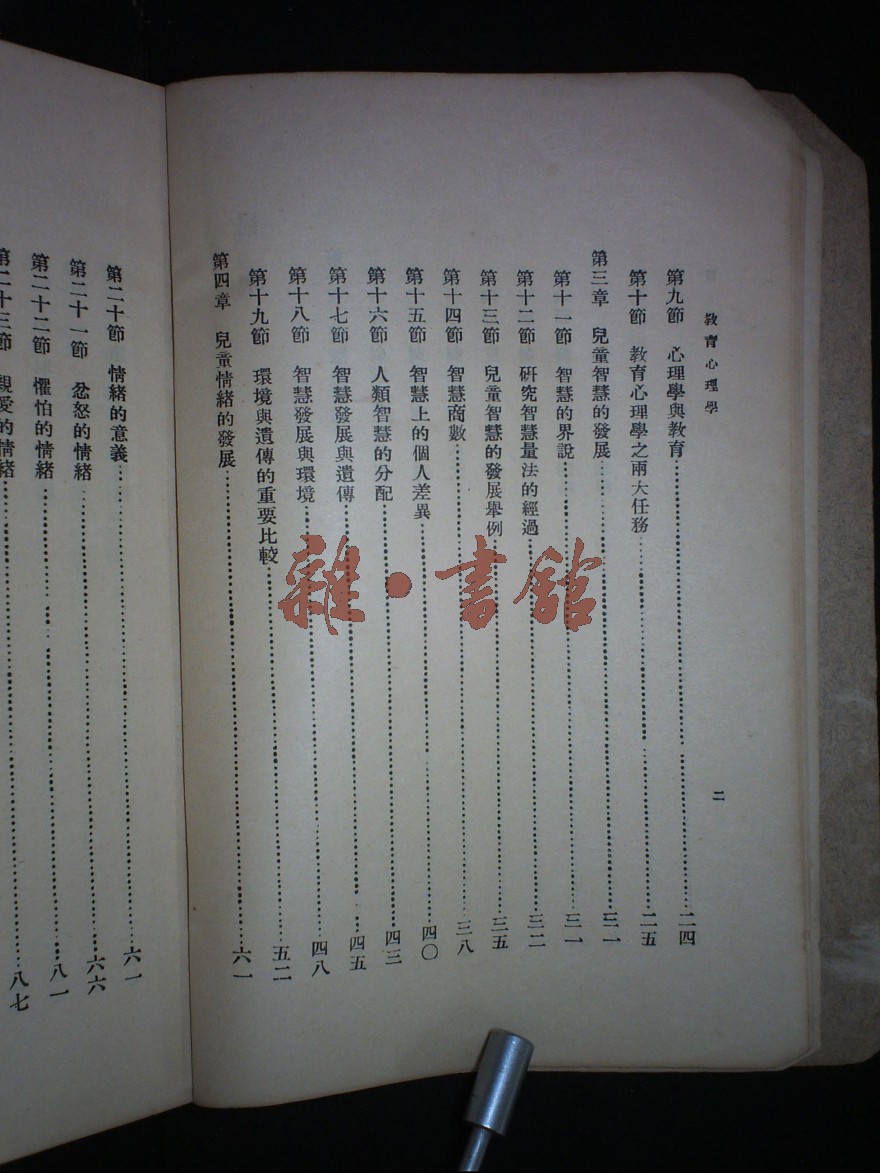 教育心理學
二
第九節 心理學與教育 二四
第十節 教育心理學之兩大任務 二五
第三章 兒童智慧的發展 三一
第十一節 智慧的界說 三一
第十二節 研究智慧量法的經過 三二
第十三節 兒童智慧的發展舉例 三五
第十四節 智慧商數 三八
第十五節 智慧上的個人差異 四〇
第十六節 人類智慧的分配 四三
第十七節 智慧發展與遺傳 四五
第十八節 智慧發展與環境 四八
第十九節 環境與遺傳的重要比較 五二
第四章 兒童情緒的發展 六一
第二十節 情緒的意義 六一
第二十一節 忿怒的情緒 六六
第二十二節 懼怕的情緒 八一
第二十三節 親愛的情緒 八七
雜·書館